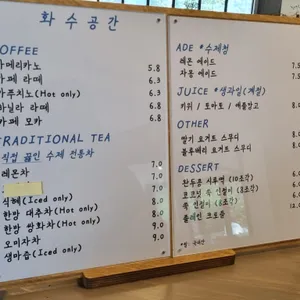 화수공간
COFFEE
아메리카노 5.8
카페 라떼 6.3
카푸치노(Hot only) 6.3
바닐라 라떼 6.8
카페 모카 6.8
TRADITIONAL TEA
직접 끓인 수제 전통차
레몬차 7.0
7.0
식혜(Iced only) 8.0
한방 대추차(Hot only) 8.0
한방 쌍화차(Hot only) 9.0
오미자차 9.0
생마즙(Iced only)
ADE *수제청
레몬 에이드 7.5
자몽 에이드
JUICE *생과일(계절)
키위 / 토마토 /
OTHER
딸기 요거트 스무디
블루베리 요거트 스무디
DESSERT
(10조각)
(8조각)
(8조각)
플레인 크로플